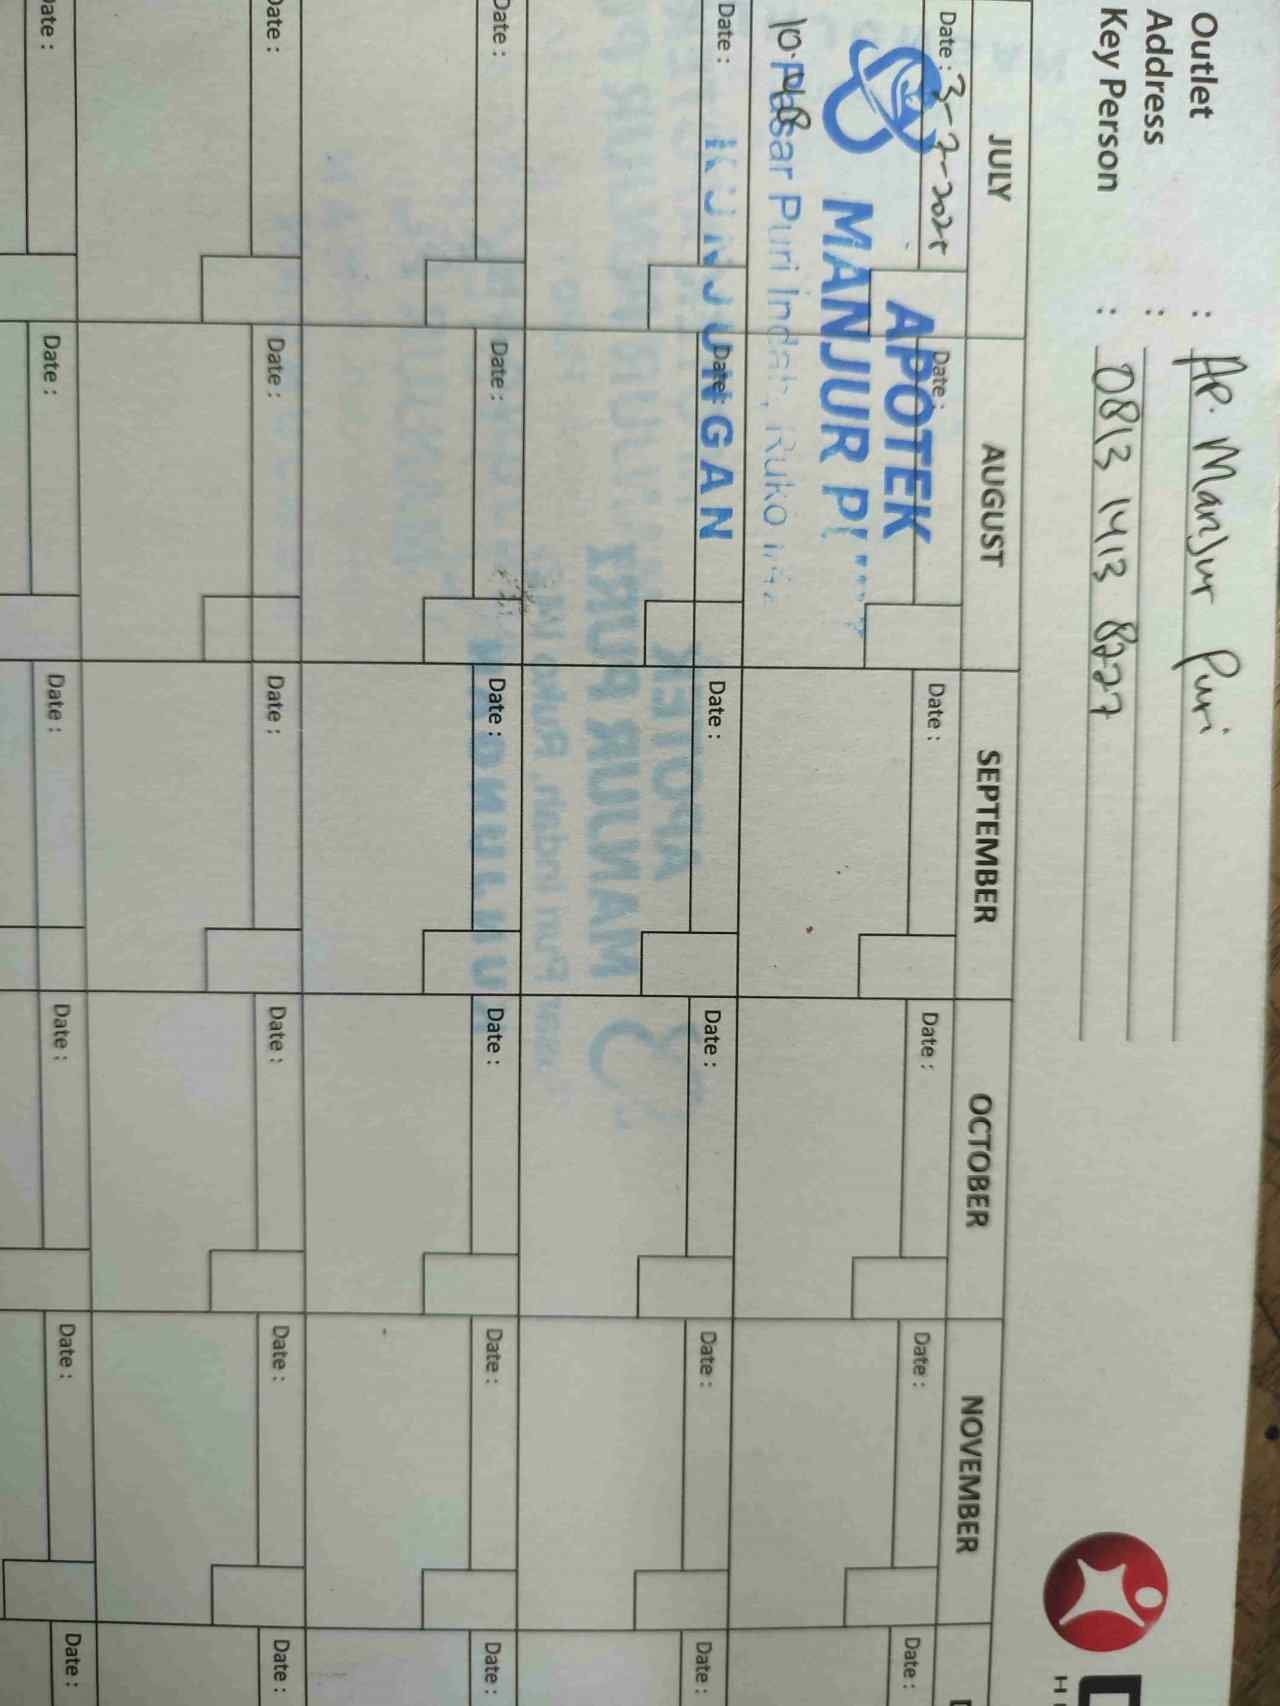 Outlet : AP. Manjur Puri
Address :
Key Person : 0813 1413 8227
JULY AUGUST SEPTEMBER OCTOBER NOVEMBER
Date : 3-7-2025 Date : Date : Date : Date : Date :
APOTEK
MANJUR
Pasar Puri Indah, Ruko
10.48
KUNJUNGAN
Date : Date : Date : Date : Date : Date :
Date : Date : Date : Date : Date : Date :
Date : Date : Date : Date : Date : Date :
Date : Date : Date : Date : Date : Date :